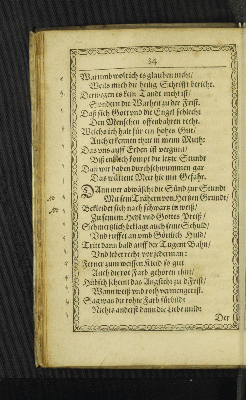 84
Warumb wolt ich es glauben nicht/
Weils mich die heilig Schrifft bericht.
Derwegen es kein Tandt nicht ist/
Sondern die Warheit zu der Frist.
Daß sich Gott und die Engel schlecht
Den Menschen offenbahren recht.
Welchs ich halt für ein hohes Gut/
Auch erkennen thut in meim Muth:
Das uns auff Erden ist vergunt/
Biß endlich kompt die letzte Stundt
Das wir haben durchschwummen gar
Das wütene Meer hie mit Gefahr.
Dann wer abwäscht die Sünd zur Stundt
Mit sein Trähern von Hertzen Grundt/
Bekleidet sich nach schwartz in weiß/
Zu seinem Heyl und Gottes Preiß/
Schmertzlich beklagt auch seine Schuld/
Und ruffet an umb Göttlich Huld/
Tritt dann bald auff der Tugent Bahn/
Und lebet recht vor jederman:
Ferner zum weissen Kleid so gut
Auch die rot Farb gehören thut/
Hübsch scheint das Angesicht zu d'Frist/
Wann weiß und roth vermenget ist.
Sag was die rohte Farb fürbild:
Nichts anderst dann die Liebe mild:
Der